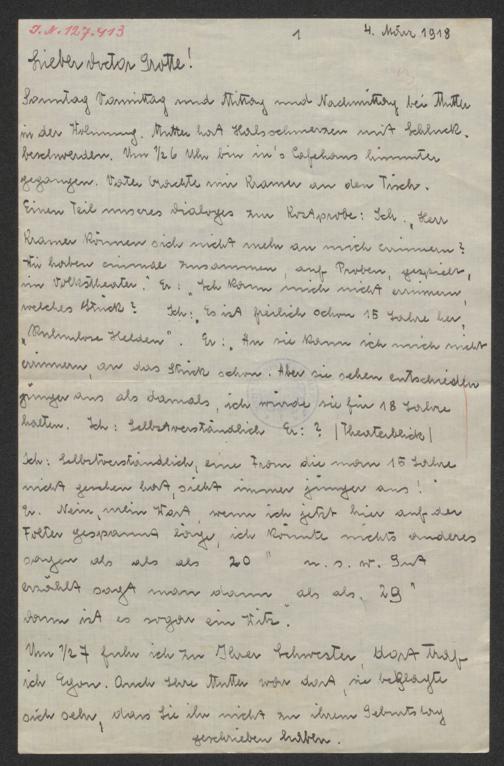 J.N. 127.413
1
4. März 1918
Lieber Doctor Grotte!
Sonntag Vormittag und Mittag und Nachmittag bei Mutter
in der Wohnung. Mutter hat Halsschmerzen mit Schluck-
beschwerden. Um 1/2 6 Uhr bin in's Cafehaus hinunter
gegangen. Vater brachte mir Kramer an den Tisch.
Einen Teil unseres Dialoges zur Kostprobe: Ich: „Herr
Kramer können sich nicht mehr an mich erinnern?
Wir haben einmal zusammen, auf Proben, gespielt,
im Volkstheater." Er: „Ich kann mich nicht erinnern,
welches Stück? Ich: „Es ist freilich schon 15 Jahre her,
„Ruhmlose Helden". Er: „An sie kann ich mich nicht
erinnern, an das Stück schon. Aber sie sehen entschieden
jünger aus als damals, ich würde sie für 18 Jahre
halten. Ich: Selbstverständlich Er: ? |Theaterblick|
Ich: Selbstverständlich, eine Frau die man 15 Jahre
nicht gesehen hat, sieht immer jünger aus!"
Er. Nein, mein Wort, wenn ich jetzt hier auf der
Folter gespannt läge, ich könnte nichts anderes
sagen als als als 20" u. s. w. Gut
erzählt sagt man dann als als, 29"
dann ist es sogar ein Witz.
Um 1/2 7 fuhr ich zu Ihrer Schwester, dort traf
ich Egon. Auch Ihre Mutter war dort, sie beklagte
sich sehr, dass Sie ihr nicht zu ihrem Geburtstag
geschrieben haben.